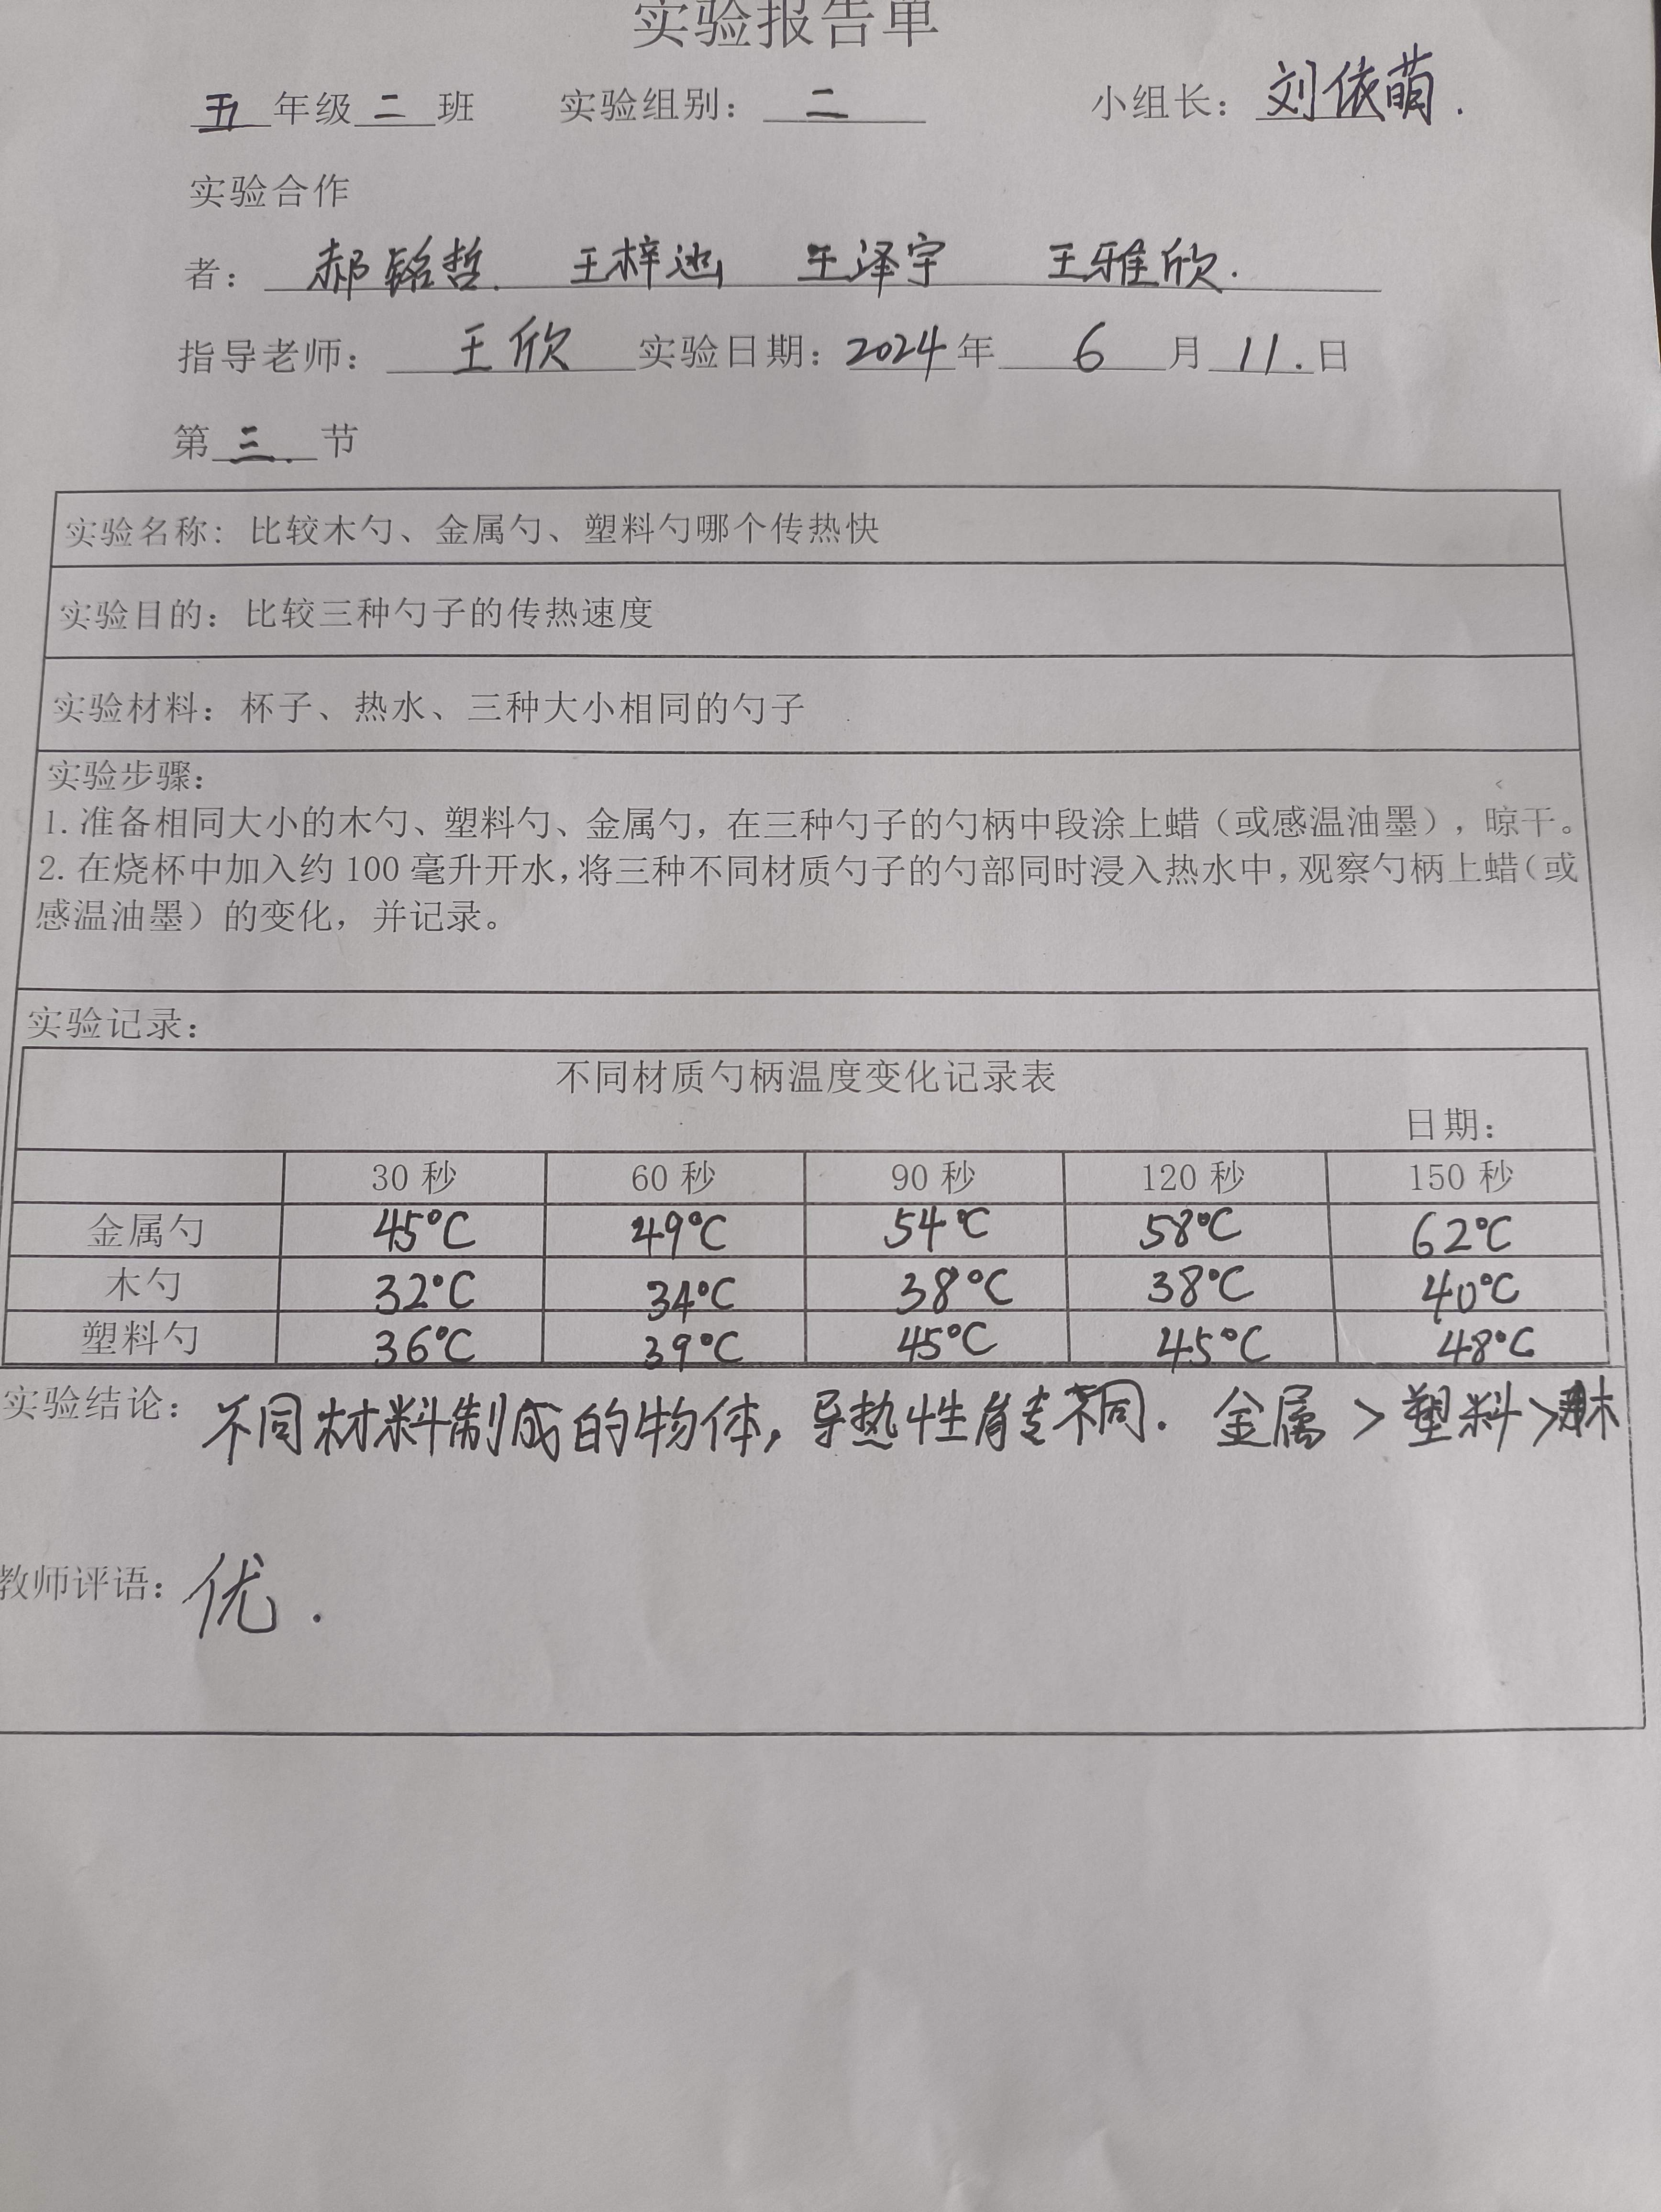 实验报告单
五年级二班 实验组别：二 小组长：刘依萌.
实验合作
者：郝铭哲. 王梓池 王泽宇 王雅欣.
指导老师：王欣 实验日期：2024年6月11.日
第三.节
实验名称：比较木勺、金属勺、塑料勺哪个传热快
实验目的：比较三种勺子的传热速度
实验材料：杯子、热水、三种大小相同的勺子
实验步骤：
1. 准备相同大小的木勺、塑料勺、金属勺，在三种勺子的勺柄中段涂上蜡（或感温油墨），晾干。
2. 在烧杯中加入约 100 毫升开水，将三种不同材质勺子的勺部同时浸入热水中，观察勺柄上蜡（或
感温油墨）的变化，并记录。
实验记录：
不同材质勺柄温度变化记录表
日期：
30 秒 60 秒 90 秒 120 秒 150 秒
金属勺 45℃ 49℃ 54℃ 58℃ 62℃
木勺 32℃ 34℃ 38℃ 38℃ 40℃
塑料勺 36℃ 39℃ 45℃ 45℃ 48℃
实验结论：不同材料制成的物体，导热性能不同. 金属＞塑料＞木
教师评语：优.